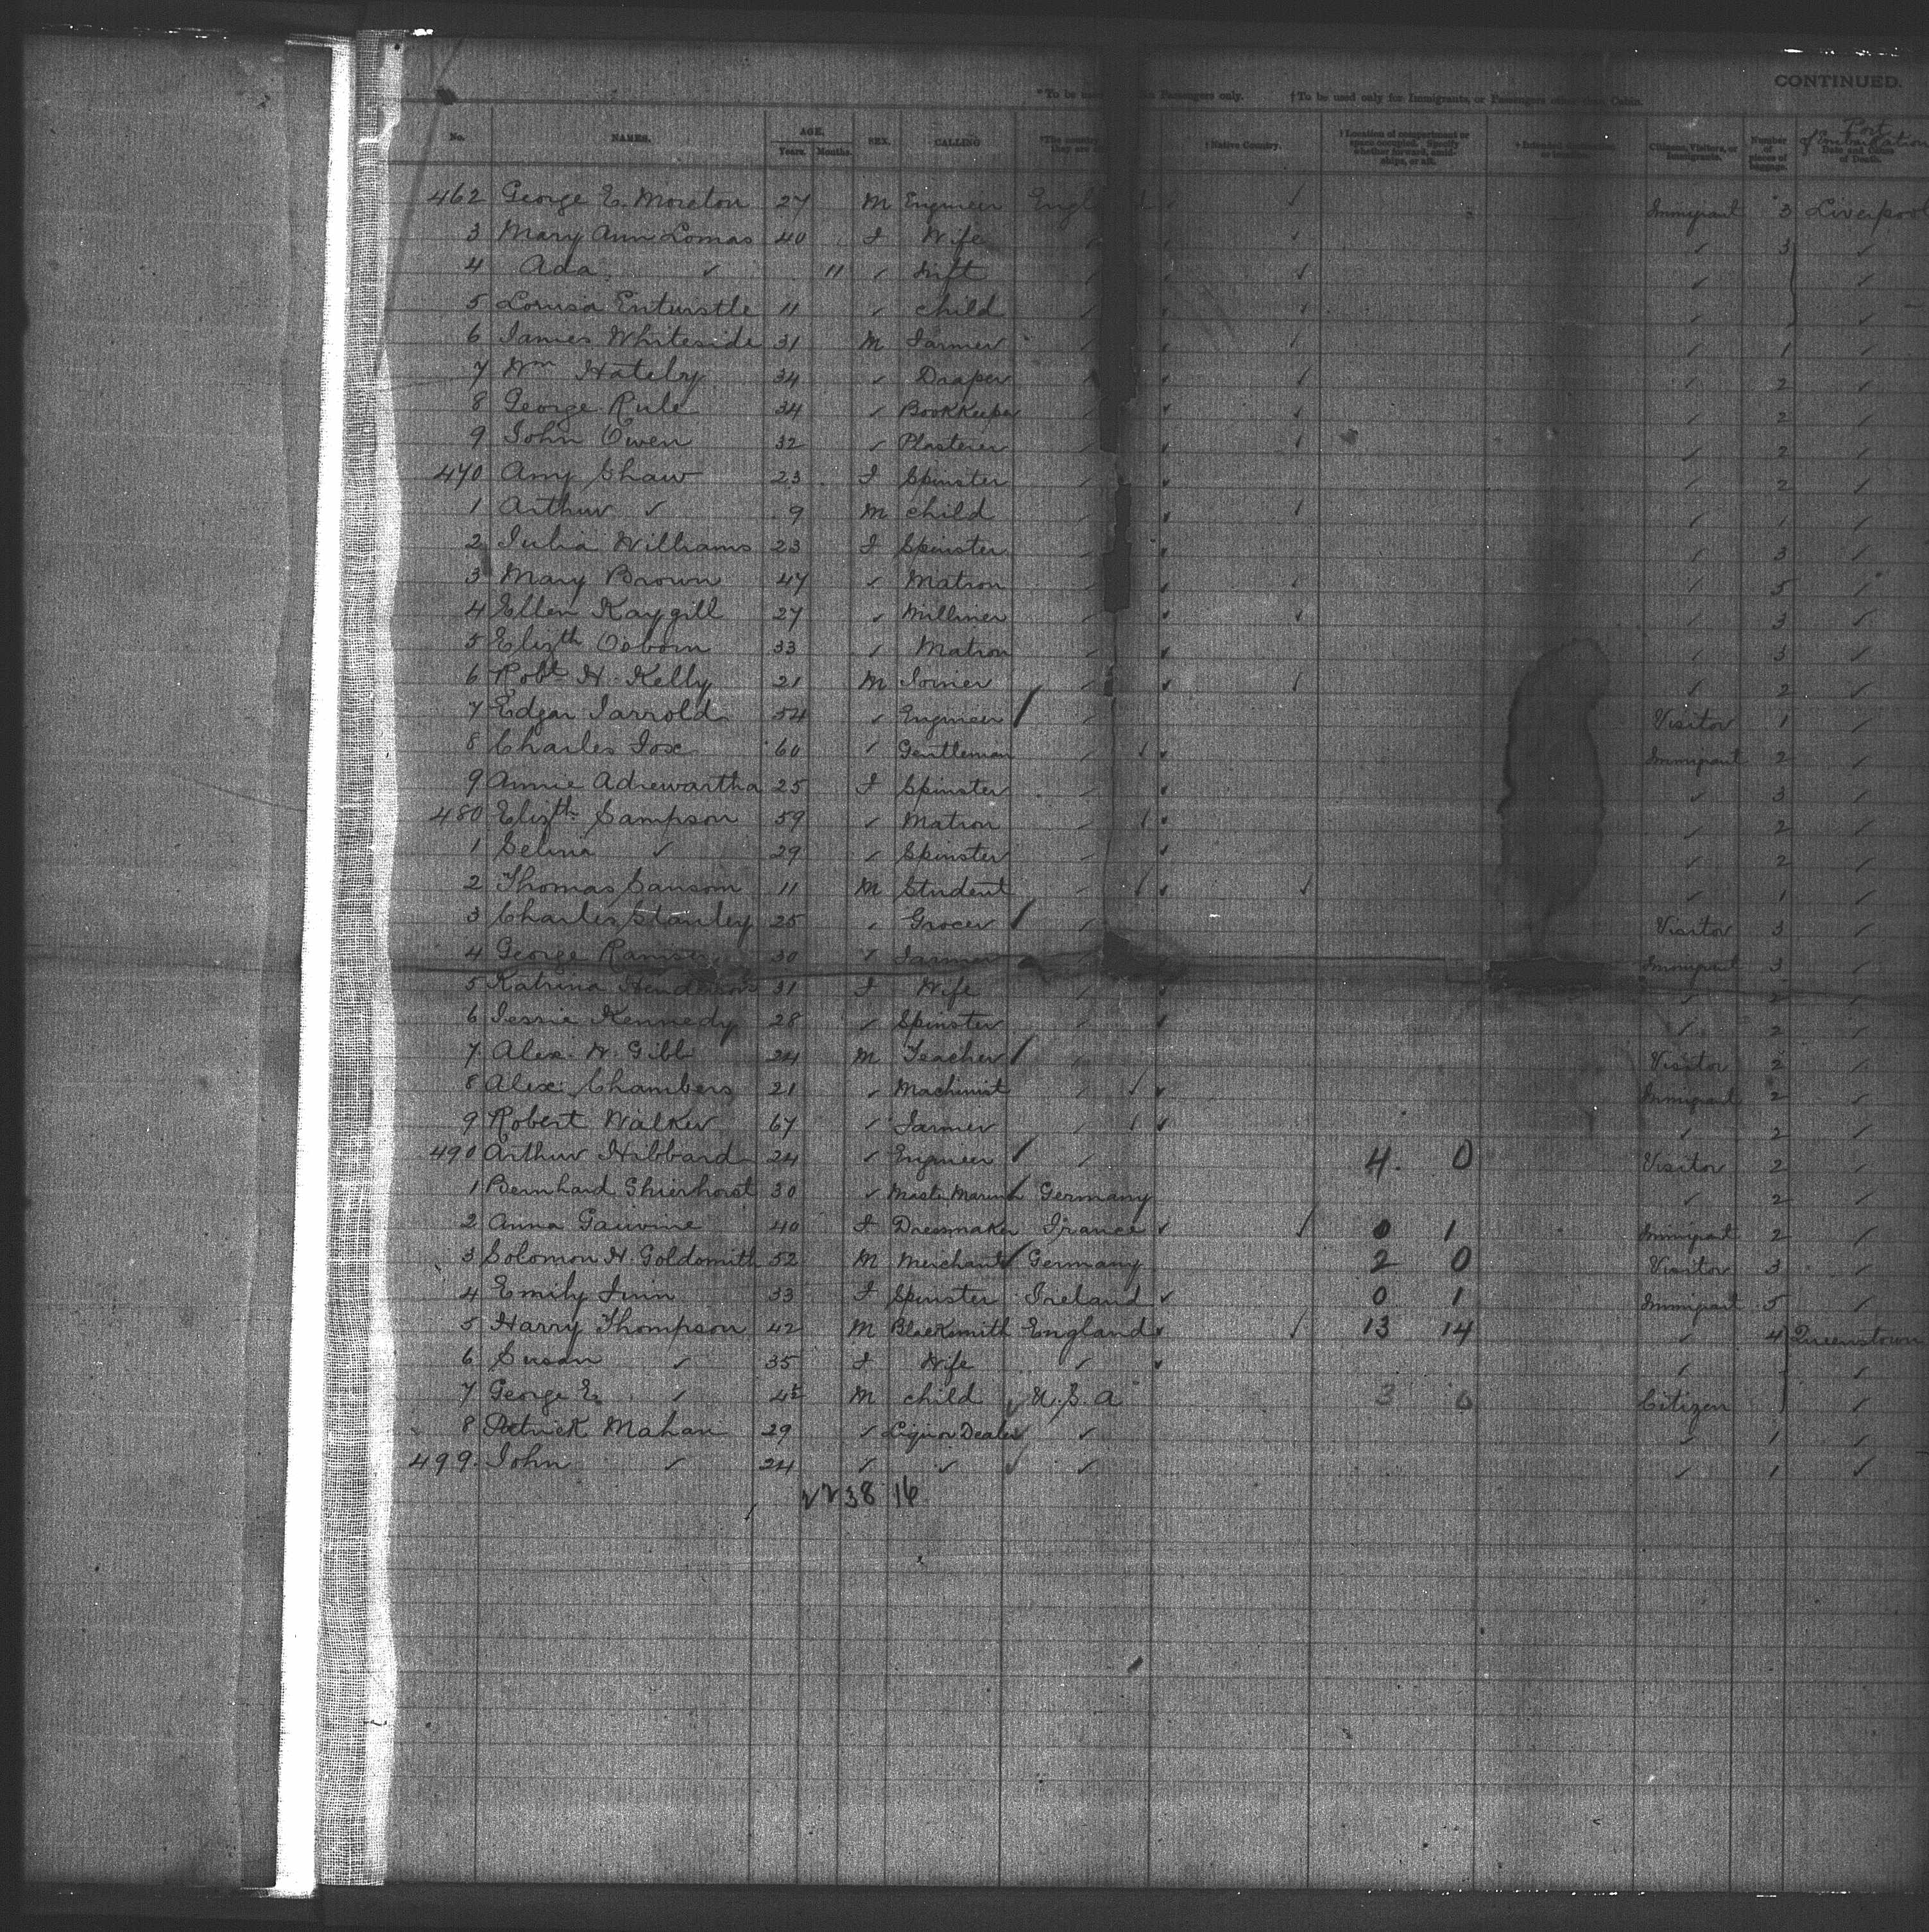 CONTINUED.
*To be used Passengers only. †To be used only for Immigrants, or Passengers other than Cabin.
No. NAMES. AGE. Years. Months. SEX. CALLING † Native Country. † Location of compartment or space occupied. Specify whether forward, amidships, or aft. Citizens, Visitors, or Immigrants. Number of pieces of baggage. Port of Embarkation Date and Cause of Death.
462 George E. Moreton 27 M Engineer England ✓ Immigrant 3 Liverpool
3 Mary Ann Lomas 40 F Wife ✓ ✓ 3 ✓
4 Ada ✓ 11 ✓ Inft ✓ ✓ ✓
5 Lorusa Entwistle 11 ✓ child ✓ ✓ ✓
6 James Whiteside 31 M Farmer ✓ ✓ 1 ✓
7 Wm Hateley 34 ✓ Draper ✓ ✓ 2 ✓
8 George Rule 34 ✓ BookKeeper ✓ ✓ 2 ✓
9 John Owen 32 ✓ Plasterer ✓ ✓ 2 ✓
470 Amy Shaw 23 F Spinster ✓ ✓ 2 ✓
1 Arthur ✓ 9 M child ✓ ✓ 1 ✓
2 Julia Williams 23 F Spinster ✓ ✓ 3 ✓
3 Mary Brown 47 ✓ Matron ✓ ✓ 5 ✓
4 Ellen Kaygill 27 ✓ Milliner ✓ ✓ 3 ✓
5 Elizth Osborn 33 ✓ Matron ✓ ✓ 3 ✓
6 Robt H. Kelly 21 M Joiner ✓ ✓ 2 ✓
7 Edgar Jarrold 54 ✓ Engineer ✓ Visitor 1 ✓
8 Charles Fox 60 ✓ Gentleman ✓ Immigrant 2 ✓
9 Annie Adrewartha 25 F Spinster ✓ ✓ 3 ✓
480 Elizth Sampson 59 ✓ Matron ✓ ✓ 2 ✓
1 Selina ✓ 29 ✓ Spinster ✓ ✓ 2 ✓
2 Thomas Sansom 11 M Student ✓ ✓ 1 ✓
3 Charles Stanley 25 ✓ Grocer ✓ Visitor 3 ✓
4 George 30 ✓ Farmer ✓ Immigrant 3 ✓
5 Katrina 31 F Wife ✓ ✓ 2 ✓
6 Jessie Kennedy 28 ✓ Spinster ✓ ✓ 2 ✓
7 Alex. W. Gibb 24 M Teacher ✓ Visitor 2 ✓
8 Alex. Chambers 21 ✓ Machinist ✓ Immigrant 2 ✓
9 Robert Walker 67 ✓ Farmer ✓ ✓ 2 ✓
490 Arthur Hibbard 24 ✓ Engineer ✓ 4. 0 Visitor 2 ✓
1 Bernhard Shierhorst 30 ✓ Master Mariner Germany ✓ 2 ✓
2 Anna Gauvine 40 F Dressmaker France ✓ 0 1 Immigrant 2 ✓
3 Solomon H. Goldsmith 52 M Merchant Germany 2 0 Visitor 3 ✓
4 Emily Finn 33 F Spinster Ireland ✓ 0 1 Immigrant 5 ✓
5 Harry Thompson 42 M Blacksmith England ✓ 13 14 ✓ 4 Queenstown
6 Susan ✓ 35 F Wife ✓ ✓ ✓
7 George E. ✓ 4 M child U.S.A 3 0 Citizen ✓
8 Patrick Mahan 29 ✓ Liquor Dealer ✓ ✓ 1 ✓
499. John ✓ 24 ✓ ✓ ✓ ✓ 1 ✓
38 16